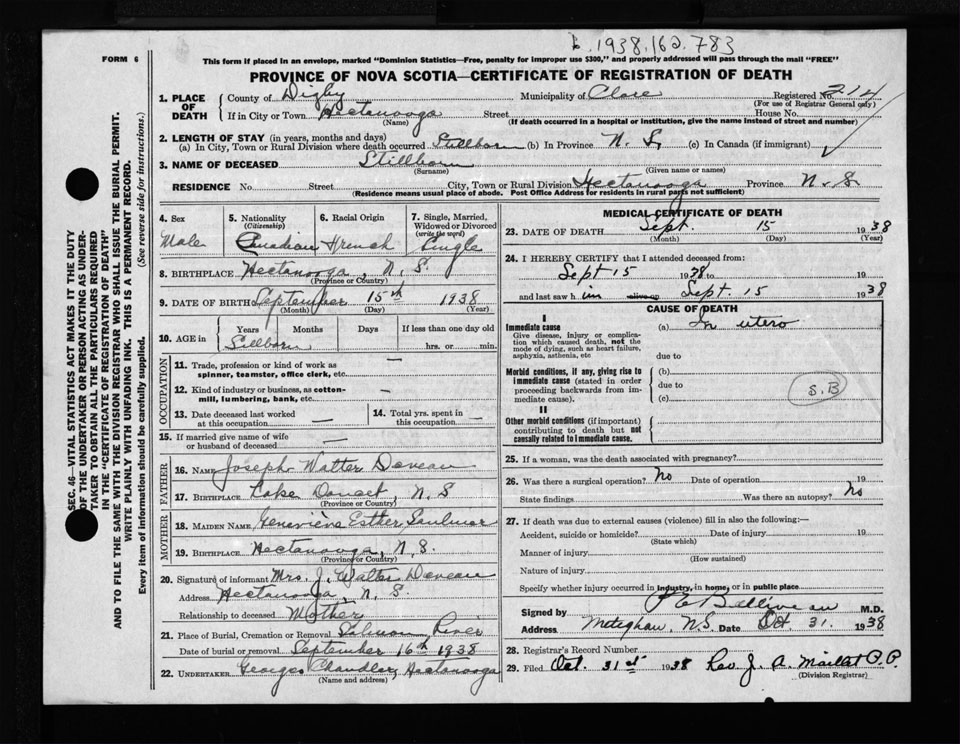 1938.162.783
FORM 6
This form if placed in an envelope, marked "Dominion Statistics—Free, penalty for improper use $300," and properly addressed will pass through the mail "FREE"
PROVINCE OF NOVA SCOTIA—CERTIFICATE OF REGISTRATION OF DEATH
SEC. 46—VITAL STATISTICS ACT MAKES IT THE DUTY
OF THE UNDERTAKER OR PERSON ACTING AS UNDER-
TAKER TO OBTAIN ALL THE PARTICULARS REQUIRED
IN THE "CERTIFICATE OF REGISTRATION OF DEATH"
AND TO FILE THE SAME WITH THE DIVISION REGISTRAR WHO SHALL ISSUE THE BURIAL PERMIT.
WRITE PLAINLY WITH UNFADING INK. THIS IS A PERMANENT RECORD.
Every item of information should be carefully supplied. (See reverse side for instructions.)
1. PLACE OF DEATH County of Digby Municipality of Clare Registered No. 214
(For use of Registrar General only)
If in City or Town Hectanooga Street House No.
(Name) (If death occurred in a hospital or institution, give the name instead of street and number)
2. LENGTH OF STAY (in years, months and days)
(a) In City, Town or Rural Division where death occurred Stillborn (b) In Province N. S. (c) In Canada (if immigrant)
3. NAME OF DECEASED Stillborn
(Surname) (Given name or names)
RESIDENCE No. Street City, Town or Rural Division Hectanooga Province N. S
(Residence means usual place of abode. Post Office Address for residents in rural parts not sufficient)
4. Sex Male
5. Nationality (Citizenship) Canadian
6. Racial Origin French
7. Single, Married, Widowed or Divorced (write the word) Single
8. BIRTHPLACE Hectanooga, N. S.
(Province or Country)
9. DATE OF BIRTH September 15th 1938
(Month) (Day) (Year)
10. AGE in Years Months Days If less than one day old
Stillborn hrs. or min.
OCCUPATION
11. Trade, profession or kind of work as spinner, teamster, office clerk, etc. —
12. Kind of industry or business, as cotton-mill, lumbering, bank, etc. —
13. Date deceased last worked at this occupation —
14. Total yrs. spent in this occupation —
15. If married give name of wife or husband of deceased —
FATHER
16. NAME Joseph Walter Deveau
17. BIRTHPLACE Lake Doucet, N. S
(Province or Country)
MOTHER
18. MAIDEN NAME Genevieve Esther Saulnier
19. BIRTHPLACE Hectanooga, N. S.
(Province or Country)
20. Signature of informant Mrs. J. Walter Deveau
Address Hectanooga, N. S.
Relationship to deceased Mother
21. Place of Burial, Cremation or Removal Salmon River
Date of burial or removal September 16th 1938
22. UNDERTAKER Georges Chandler, Hectanooga
(Name and address)
MEDICAL CERTIFICATE OF DEATH
23. DATE OF DEATH Sept. 15 1938
(Month) (Day) (Year)
24. I HEREBY CERTIFY that I attended deceased from:
Sept 15 1938 to 19
and last saw him alive on Sept 15 1938
CAUSE OF DEATH
I
Immediate cause (a) In utero
Give disease, injury or complica-
tion which caused death, not the
mode of dying, such as heart failure,
asphyxia, asthenia, etc due to
Morbid conditions, if any, giving rise to (b)
immediate cause (stated in order due to
proceeding backwards from im-
mediate cause). (c)
S.B
II
Other morbid conditions (if important)
contributing to death but not
causally related to immediate cause.
25. If a woman, was the death associated with pregnancy?
26. Was there a surgical operation? No Date of operation 19
State findings Was there an autopsy? No
27. If death was due to external causes (violence) fill in also the following:—
Accident, suicide or homicide? Date of injury 19
(State which)
Manner of injury
(How sustained)
Nature of injury
Specify whether injury occurred in industry, in home, or in public place
Signed by P E Belliveau M.D.
Address Meteghan, N.S. Date Oct 31. 1938
28. Registrar's Record Number
29. Filed Oct. 31st 1938 Rev. J. A. Maillet P.P.
(Division Registrar)